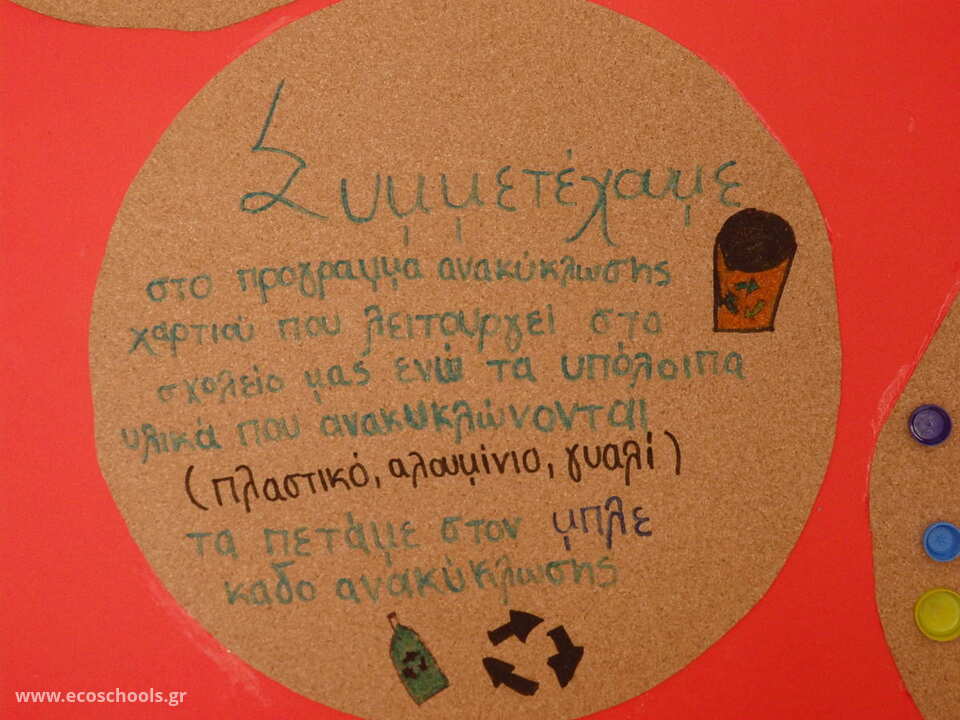 Συμμετέχουμε
στο προγραμμα ανακύκλωσης
χαρτιού που λειτουργεί στο
σχολείο μας ενώ τα υπόλοιπα
υλικά που ανακυκλώνονται
(πλαστικό, αλουμίνιο, γυαλί)
τα πετάμε στον μπλε
καδο ανακύκλωσης
www.ecoschools.gr